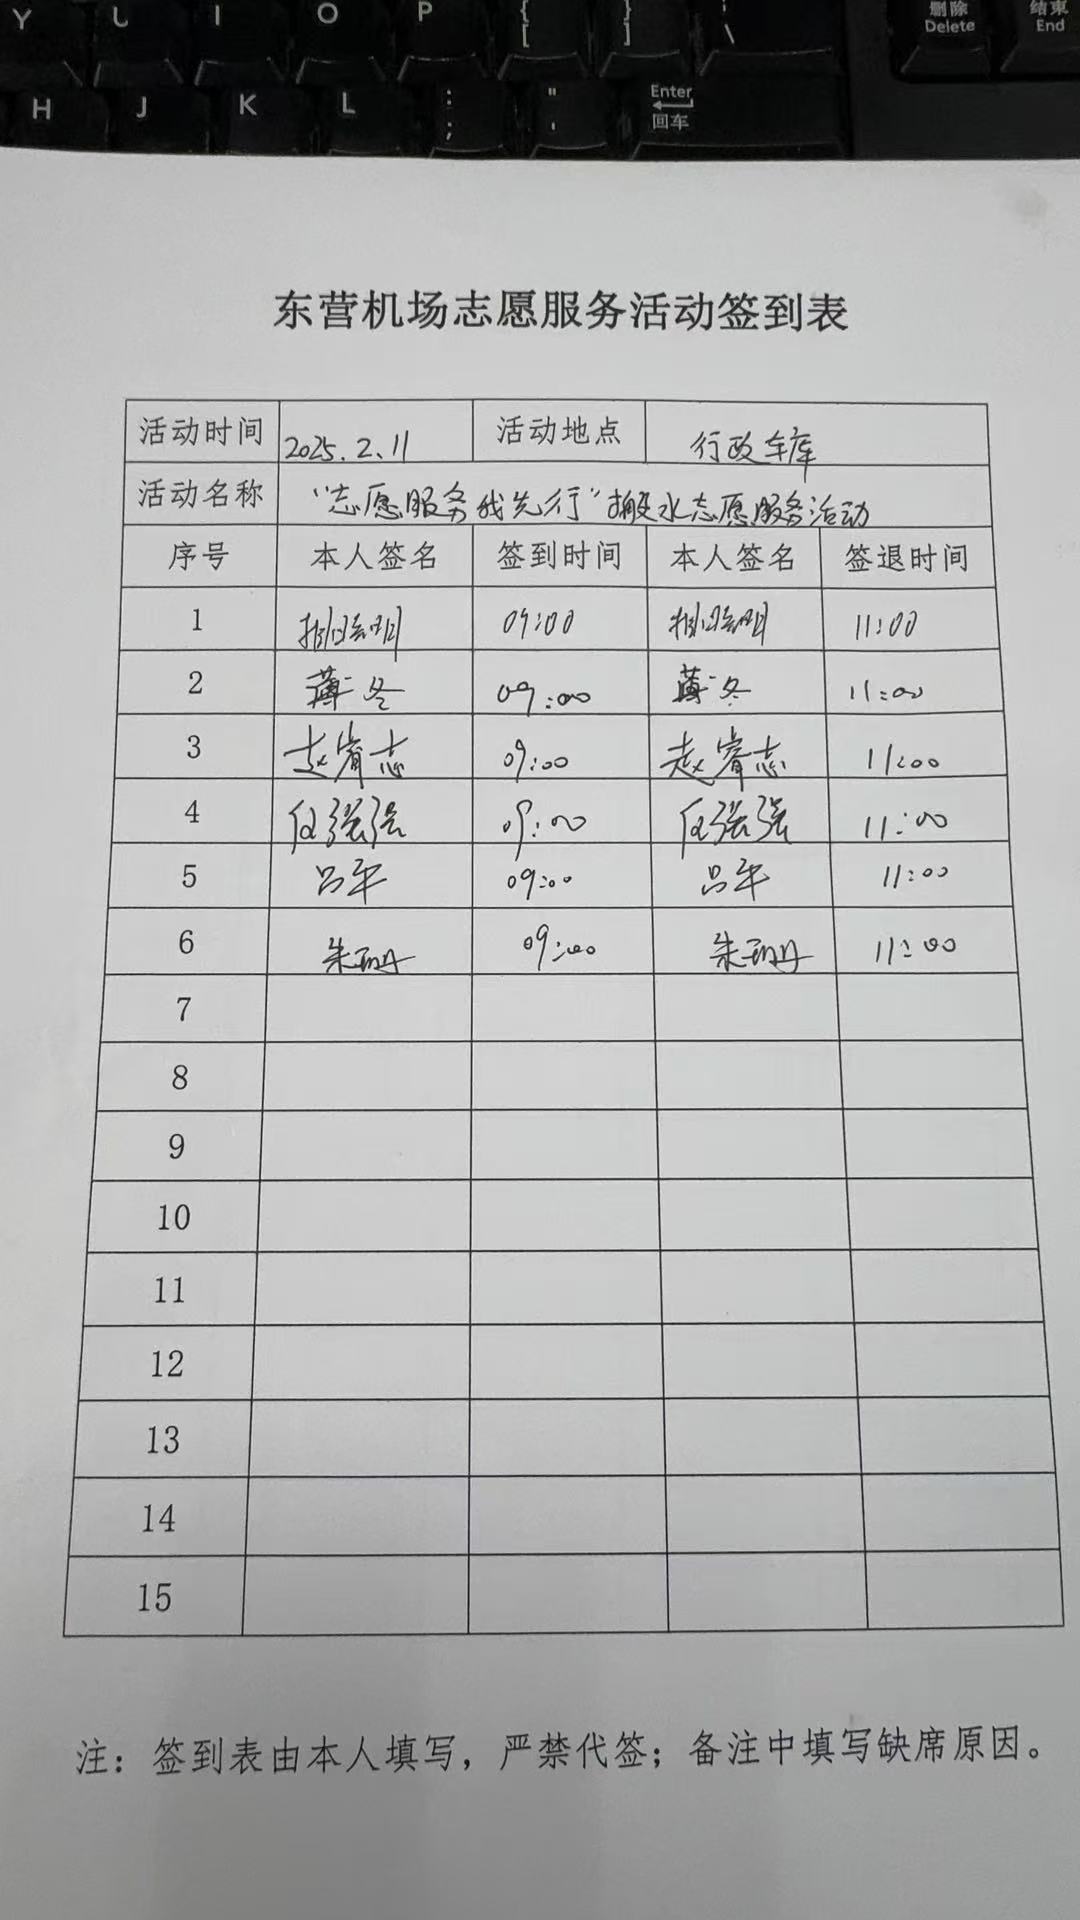 Y U I O P { [ } ] | \ 删除 Delete 结束 End
H J K L : ; " ' Enter 回车
东营机场志愿服务活动签到表
活动时间 2025.2.11 活动地点 行政车库
活动名称 "志愿服务我先行"搬水志愿服务活动
序号 本人签名 签到时间 本人签名 签退时间
1 09:00 11:00
2 薄冬 09:00 薄冬 11:00
3 赵睿志 09:00 赵睿志 11:00
4 任强强 09:00 任强强 11:00
5 吕平 09:00 吕平 11:00
6 朱珊珊 09:00 朱珊珊 11:00
7
8
9
10
11
12
13
14
15
注：签到表由本人填写，严禁代签；备注中填写缺席原因。